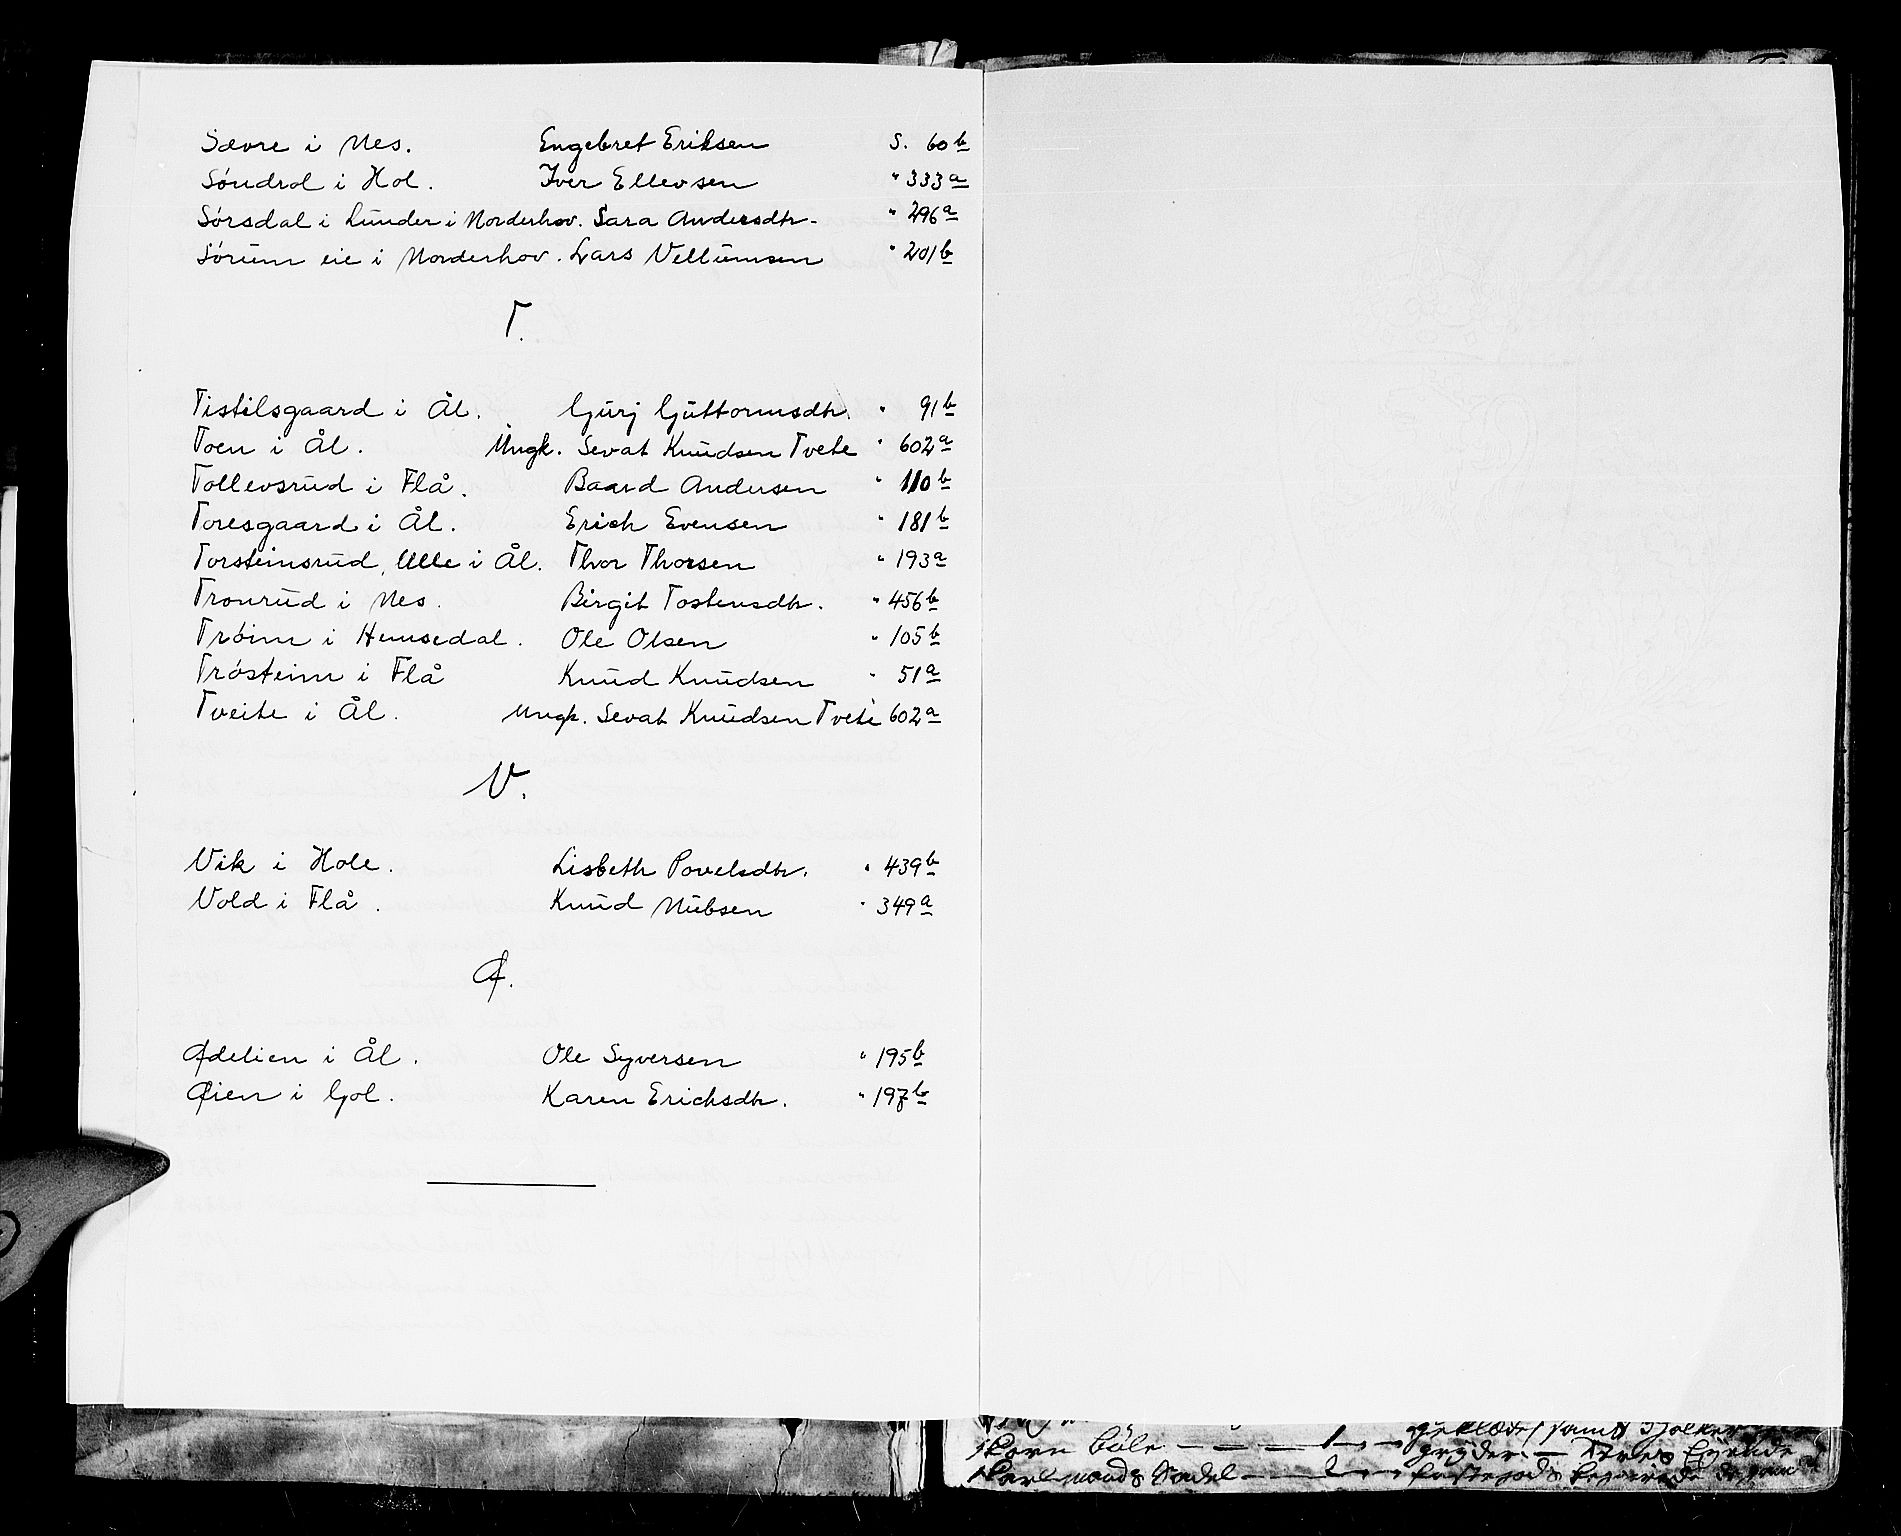 Sævre i Nes. Engebret Eriksen S. 60b
Søndrol i Hol. Iver Ellevsen " 333a
Sørsdal i Lunder i Norderhov. Sara Andersdtr. " 296a
Sørum eie i Norderhov. Lars Vellumsen " 201b
T.
Tistilsgaard i Ål. Gurj Guttormsdtr. " 91b
Toen i Ål. Ungk. Sevat Knudsen Tvete " 602a
Tollevsrud i Flå. Baard Andersen " 110b
Toresgaard i Ål. Erich Evensen " 181b
Torsteinsrud, Ulle i Ål. Thor Thorsen " 193a
Tronrud i Nes. Birgit Tostensdtr. " 456b
Trøim i Hemsedal. Ole Olsen " 105b
Trøsteim i Flå Knud Knudsen " 51a
Tveite i Ål. Ungk. Sevat Knudsen Tvete 602a
V.
Vik i Hole. Lisbeth Povelsdtr. " 439b
Vold i Flå. Knud Nubsen " 349a
Ø.
Ødelien i Ål. Ole Syversen " 195b
Øien i Gol. Karen Erichsdtr. " 197b